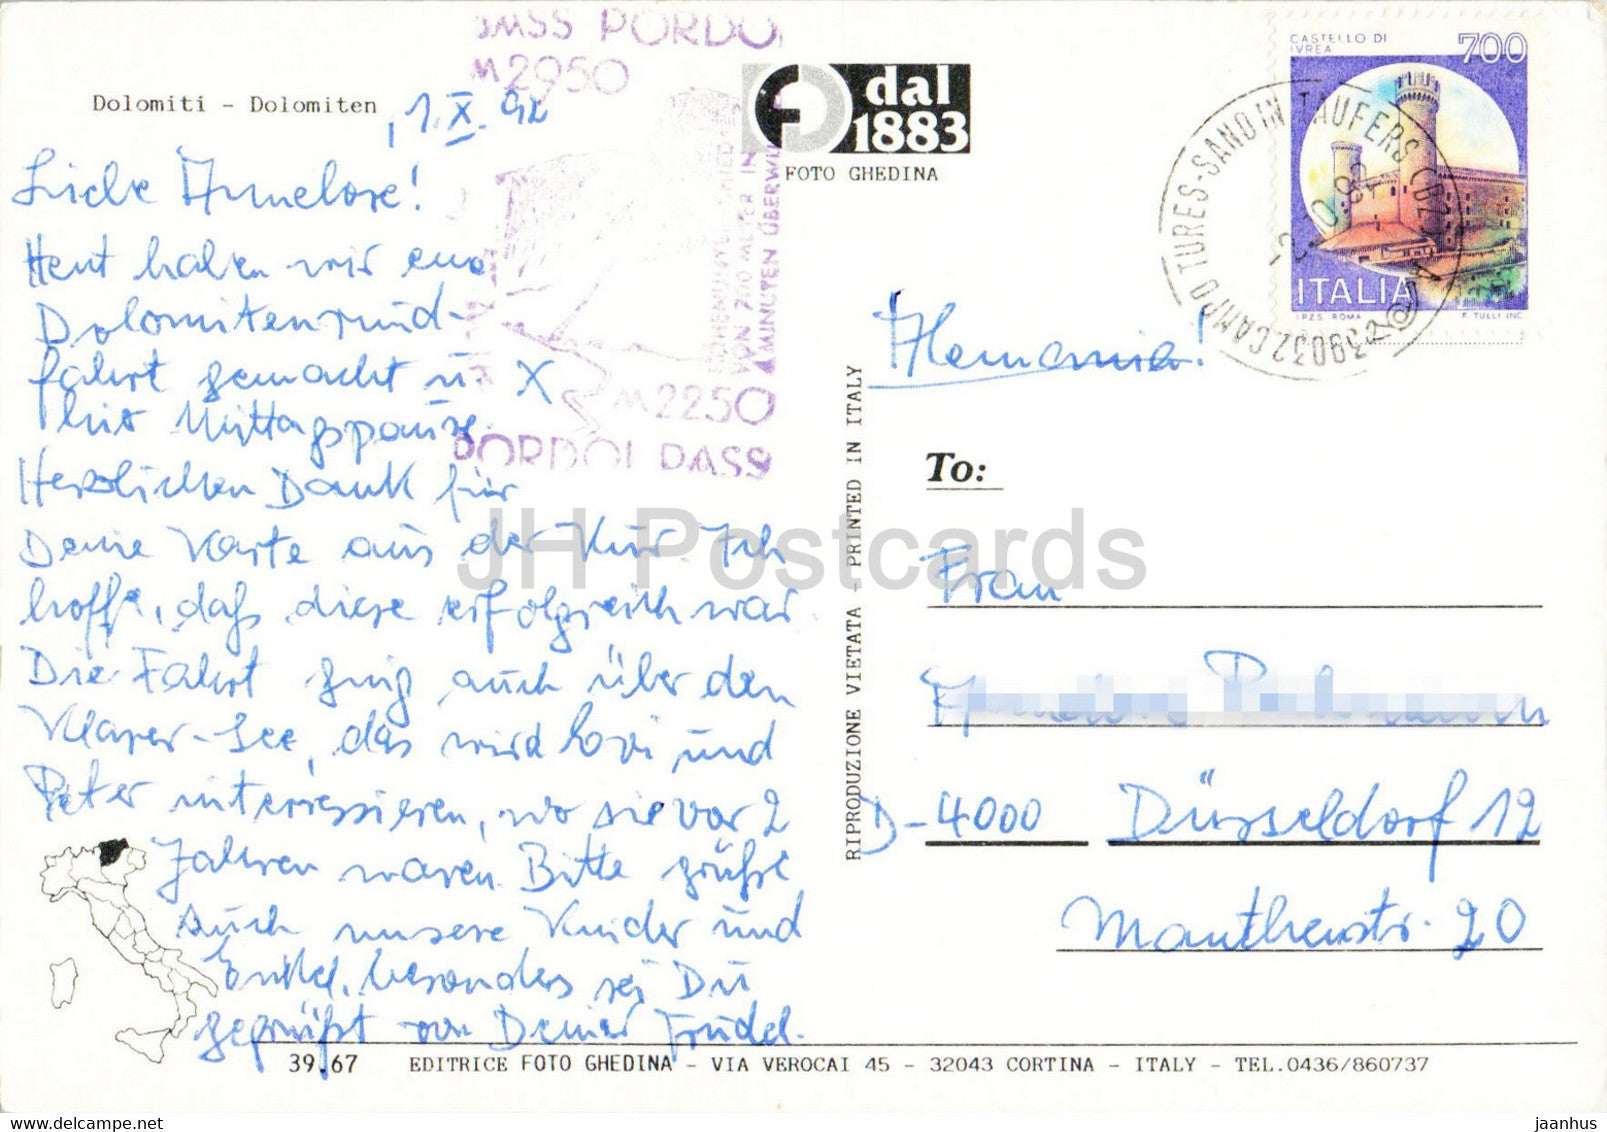 Dolomiti - Dolomiten
1. X. 92
Liebe Annelore!
Heut haben wir eine
Dolomitenrund-
fahrt gemacht u. X
hier Mittagspause.
Herzlichen Dank für
Deine Karte aus der Kur. Ich
hoffe, daß diese erfolgreich war
Die Fahrt ging auch über den
See, das wird und
Peter interessieren, wo sie vor 2
Jahren waren. Bitte grüße
auch unsere Kinder und
Enkel, besonders sei Du
gegrüßt von Deiner Trudel.
SASS PORDOI
M 2950
VON 700 METER IN
4 MINUTEN ÜBERWU
M 2250
PORDOI PASS
dal
1883
FOTO GHEDINA
CASTELLO DI
IVREA
700
ITALIA
I.P.Z.S. ROMA
F. TULLI INC.
39032 CAMPO TURES-SAND IN TAUFERS (BZ)
Alemania!
To:
Frau
D-4000 Düsseldorf 12
Manthenstr. 20
RIPRODUZIONE VIETATA - PRINTED IN ITALY
39.67 EDITRICE FOTO GHEDINA - VIA VEROCAI 45 - 32043 CORTINA - ITALY - TEL.0436/860737
JH Postcards
www.delcampe.net
jaanhus